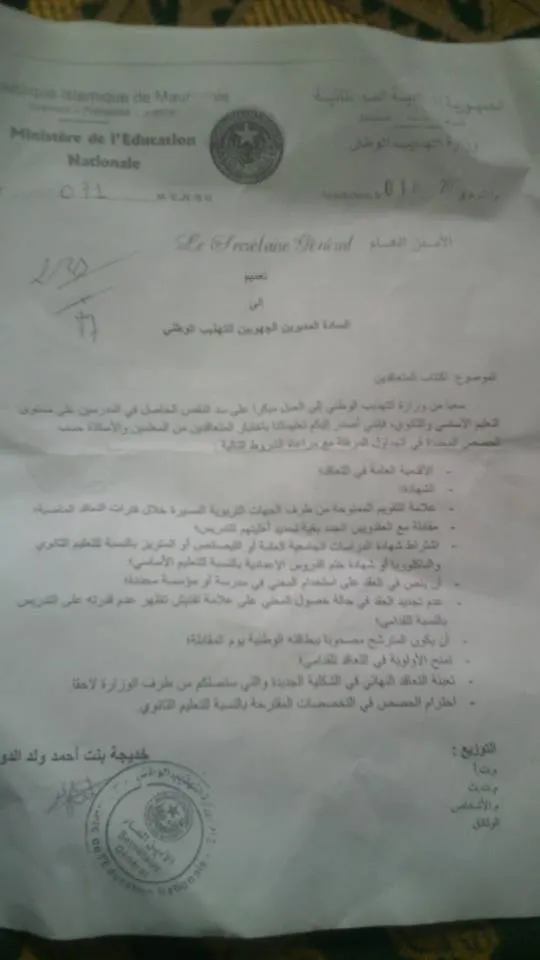 République Islamique de Mauritanie
الجمهورية الإسلامية الموريتانية
Ministère de l'Education
Nationale
وزارة التهذيب الوطني
031
Le Secrétaire Général الأمين العام
تعميم
إلى
السادة المديرين الجهويين للتهذيب الوطني
الموضوع: اكتتاب المتعاقدين
سعيا من وزارة التهذيب الوطني إلى العمل مبكرا على سد النقص الحاصل في المدرسين على مستوى
التعليم الأساسي والثانوي، فإنني أصدر إليكم تعليماتنا باختيار المتعاقدين من المعلمين والأساتذة حسب
الحصص المحددة في الجداول المرفقة مع مراعاة الشروط التالية:
- الأقدمية العامة في التعاقد؛
- الشهادة؛
- علامة التقويم الممنوحة من طرف الجهات التربوية المسيرة خلال فترات التعاقد الماضية؛
- مقابلة مع العقدويين الجدد بغية تحديد أهليتهم للتدريس؛
- اشتراط شهادة الدراسات الجامعية العامة أو الليصانص أو المتريز بالنسبة للتعليم الثانوي
والباكلوريا أو شهادة ختم الدروس الإعدادية بالنسبة للتعليم الأساسي؛
- أن ينص في العقد على استخدام المعني في مدرسة أو مؤسسة محددة؛
- عدم تجديد العقد في حالة حصول المعني على علامة تفتيش تظهر عدم قدرته على التدريس
بالنسبة للقدامى؛
- أن يكون المترشح مصحوبا ببطاقته الوطنية يوم المقابلة؛
- تمنح الأولوية في التعاقد للقدامى؛
- تعبئة التعاقد النهائي في الشكلية الجديدة والتي ستصلكم من طرف الوزارة لاحقا
- احترام الحصص في التخصصات المقترحة بالنسبة للتعليم الثانوي.
التوزيع:
خديجة بنت أحمد ولد الدو
وت أ
وت ث
والأشخاص
الوثائق
الأمين العام
Secrétaire
Général